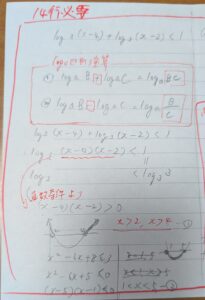 log₃(x-4)+log₃(x-2)<1
logの四則演算
① logₐB+logₐC=logₐBC
② logₐB-logₐC=logₐB/C
log₃(x-4)+log₃(x-2)<1
log₃(x-4)(x-2)<1
log₃ <log₃3
真数条件より
(x-4)(x-2)>0
x>2, x>4 -①
x²-6x+8≤3
x²-6x+5≤0
(x-5)(x-1)≤0
1<x<5 -②